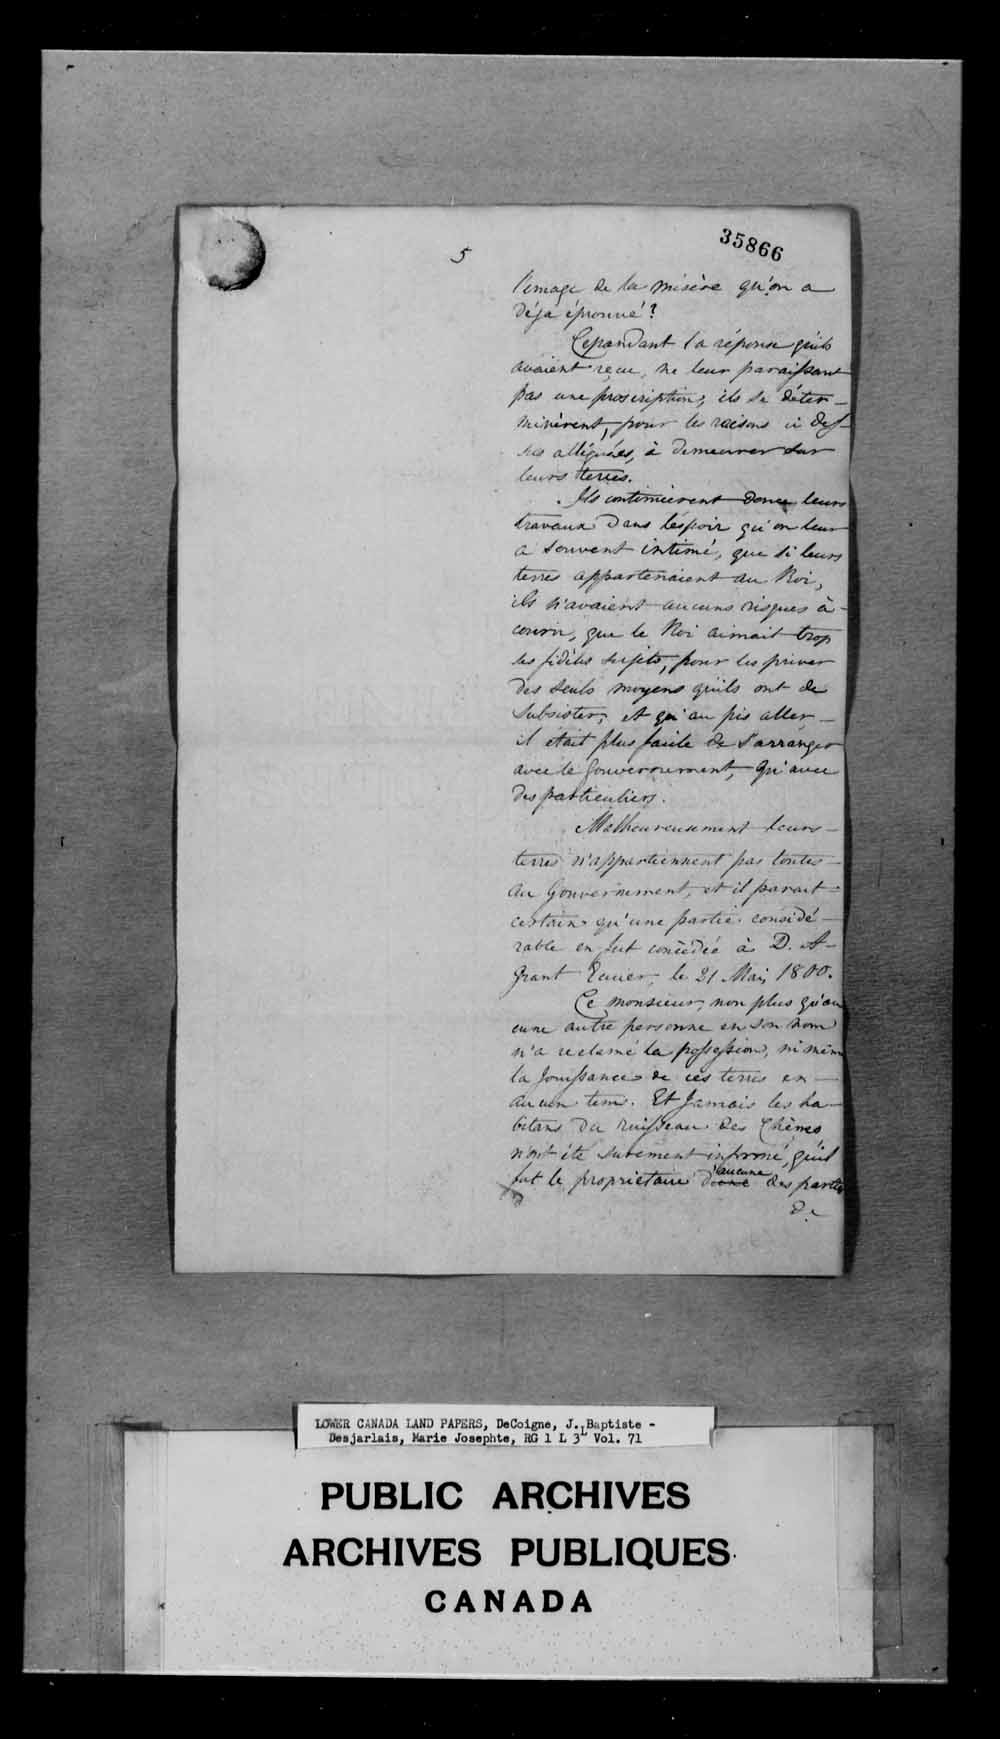 35866
5
l'image de la misère qu'on a
déja éprouvé?
Cependant la réponse qu'ils
avaient reçue, ne leur paraissant
pas une proscription, ils se déter-
minèrent, pour les raisons ci des-
sus alléguées, à demeurer sur
leurs terres.
Ils continuèrent donc leurs
travaux dans l'espoir qu'on leur
a souvent intimé, que si leurs
terres appartenaient au Roi,
ils n'avaient aucuns risques à
courir, que le Roi aimait trop
ses fidèles sujets, pour les priver
des seuls moyens qu'ils ont de
subsister, et qu'au pis aller
il etait plus facile de s'arranger
avec le Gouvernement, qu'avec
des particuliers.
Malheureusement leurs
terres n'appartiennent pas toutes
au Gouvernement, et il parait
certain qu'une partie considé-
rable en fut concédée à D. A.
Grant Ecuier, le 21 Mai, 1800.
Ce monsieur, non plus qu'au
cune autre personne en son nom
n'a reclamé la possession, ni même
la jouissance de ces terres en
aucun tems. Et jamais les ha-
bitans du ruisseau des Chènes
n'ont été surement informé, qu'il
fut le proprietaire d'aucune des parties
de
LOWER CANADA LAND PAPERS, DeCoigne, J. Baptiste -
Desjarlais, Marie Josephte, RG 1 L 3L Vol. 71
PUBLIC ARCHIVES
ARCHIVES PUBLIQUES
CANADA